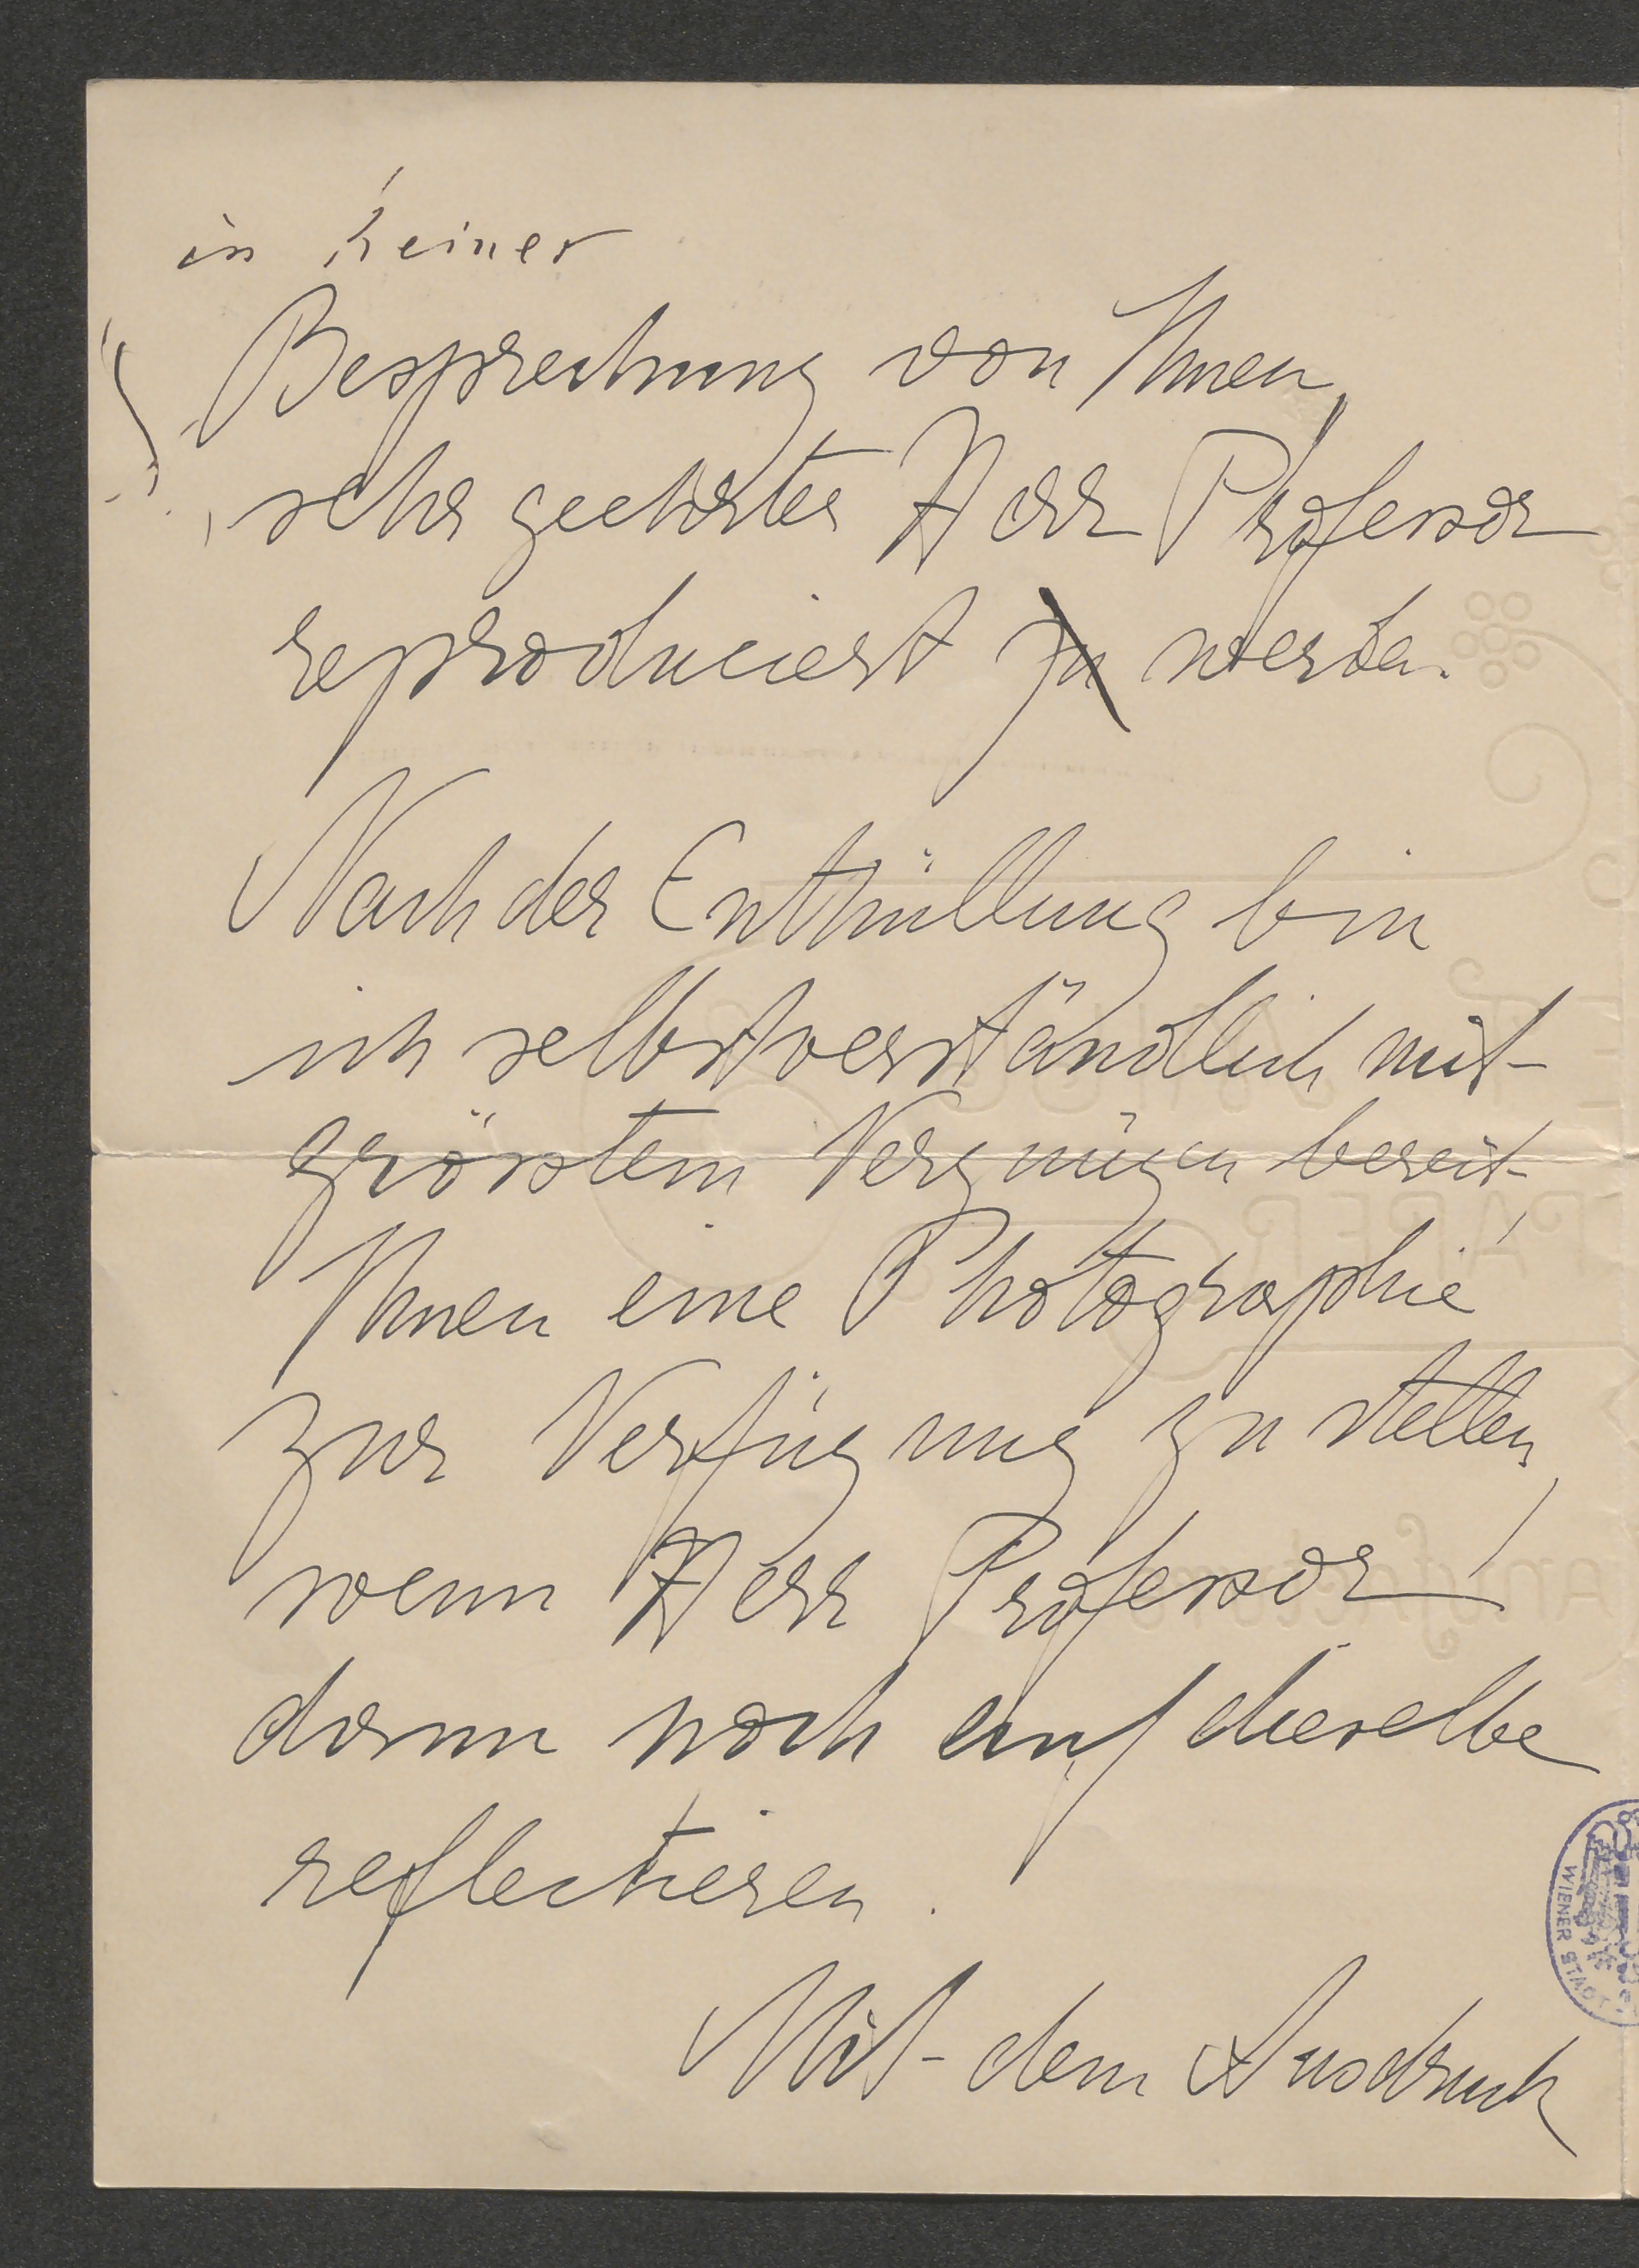 in keiner
Besprechung von Ihnen,
sehr geehrter Herr Professor
reproduciert zu werden.
Nach der Enthüllung bin
ich selbstverständlich mit
grösstem Vergnügen bereit,
Ihnen eine Photographie
zur Verfügung zu stellen,
wenn Herr Professor
dann noch auf dieselbe
reflectieren.
Mit dem Ausdruck
WIENER STADT
PAPER